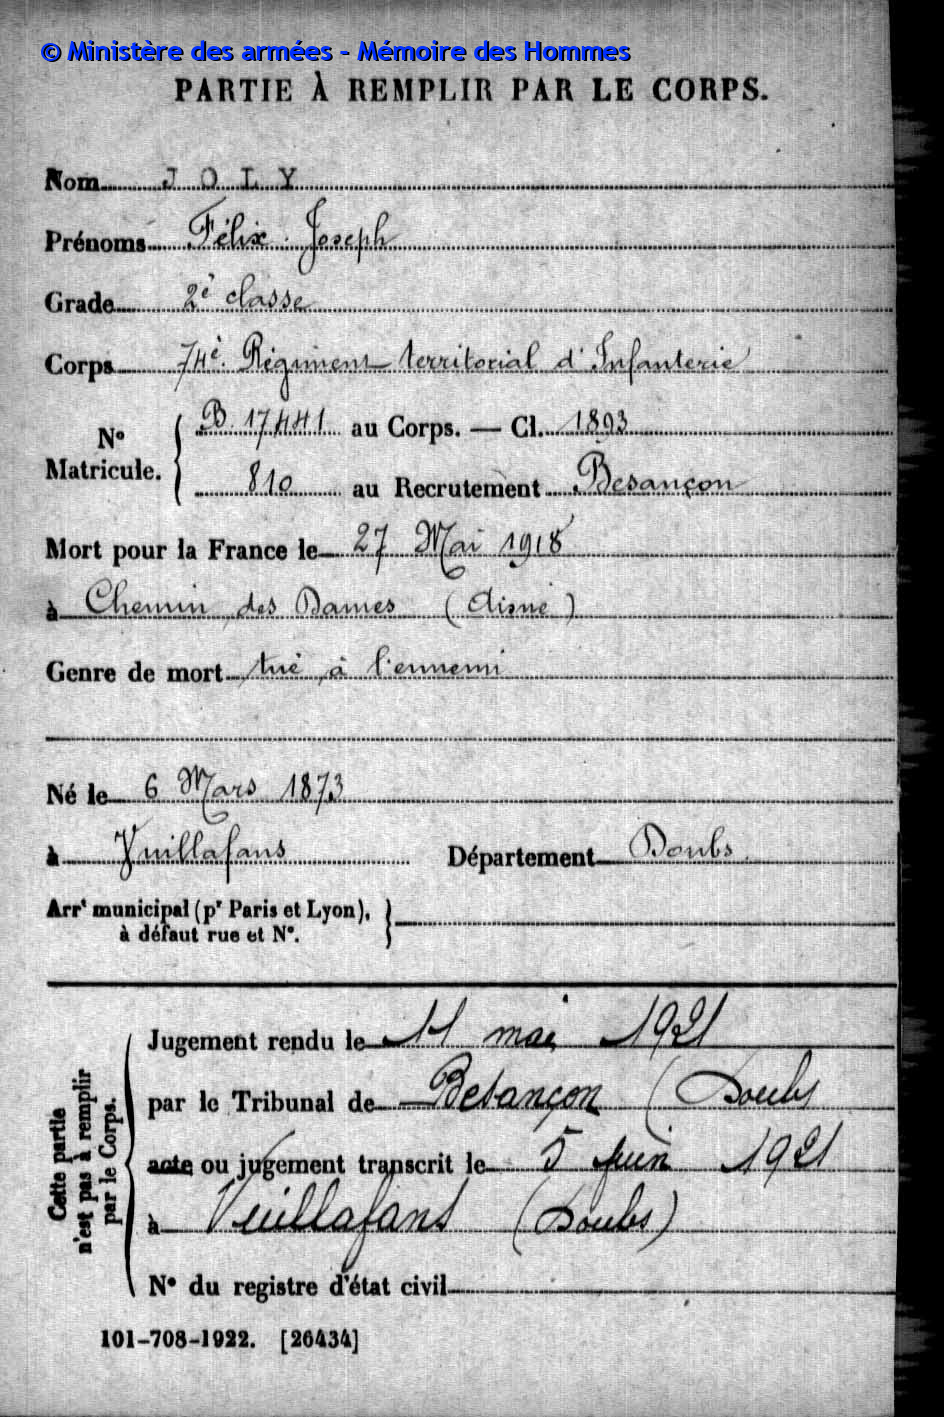 © Ministère des armées - Mémoire des Hommes
PARTIE À REMPLIR PAR LE CORPS.
Nom JOLY
Prénoms Félix Joseph
Grade 2è classe
Corps 74è. Régiment territorial d'Infanterie
N° Matricule. B. 17441 au Corps. — Cl. 1893
810 au Recrutement Besançon
Mort pour la France le 27 Mai 1918
à Chemin des Dames (Aisne)
Genre de mort tué à l'ennemi
Né le 6 Mars 1873
à Vuillafans Département Doubs
Arrt municipal (pr Paris et Lyon),
à défaut rue et N°.
Cette partie n'est pas à remplir par le Corps.
Jugement rendu le 11 mai 1921
par le Tribunal de Besançon (Doubs
acte ou jugement transcrit le 5 juin 1921
à Vuillafans (Doubs)
N° du registre d'état civil
101-708-1922. [26434]